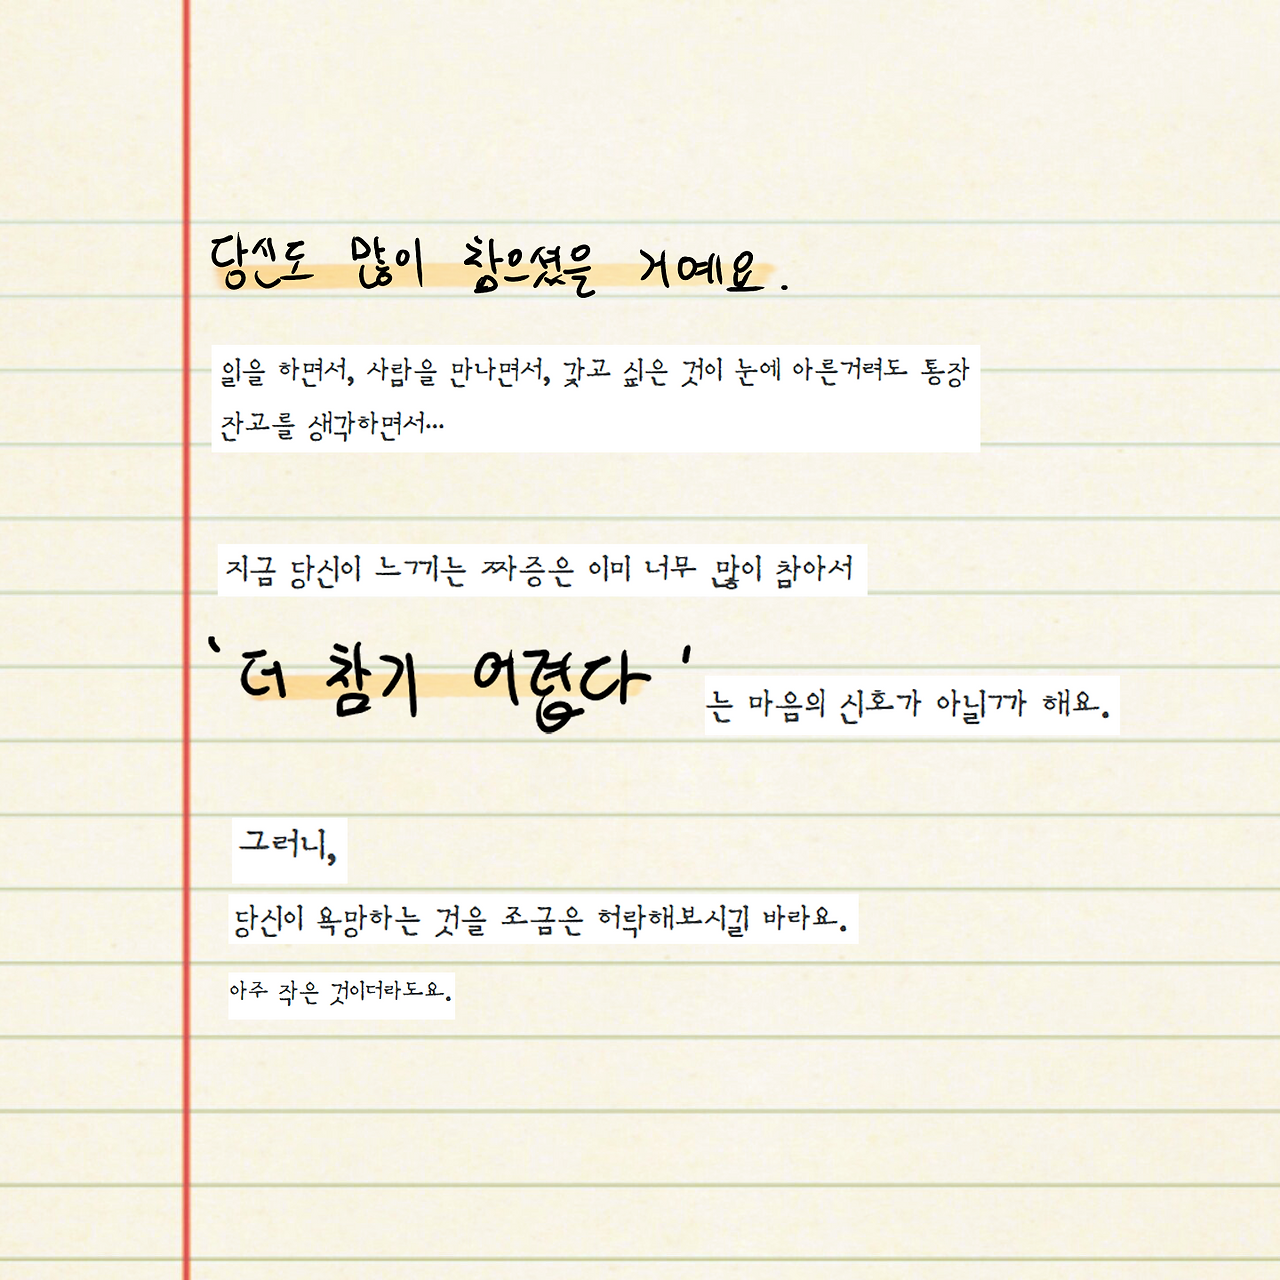 당신도 많이 참으셨을 거예요.
일을 하면서, 사람을 만나면서, 갖고 싶은 것이 눈에 아른거려도 통장
잔고를 생각하면서…
지금 당신이 느끼는 짜증은 이미 너무 많이 참아서
'더 참기 어렵다'는 마음의 신호가 아닐까 해요.
그러니,
당신이 욕망하는 것을 조금은 허락해보시길 바라요.
아주 작은 것이더라도요.